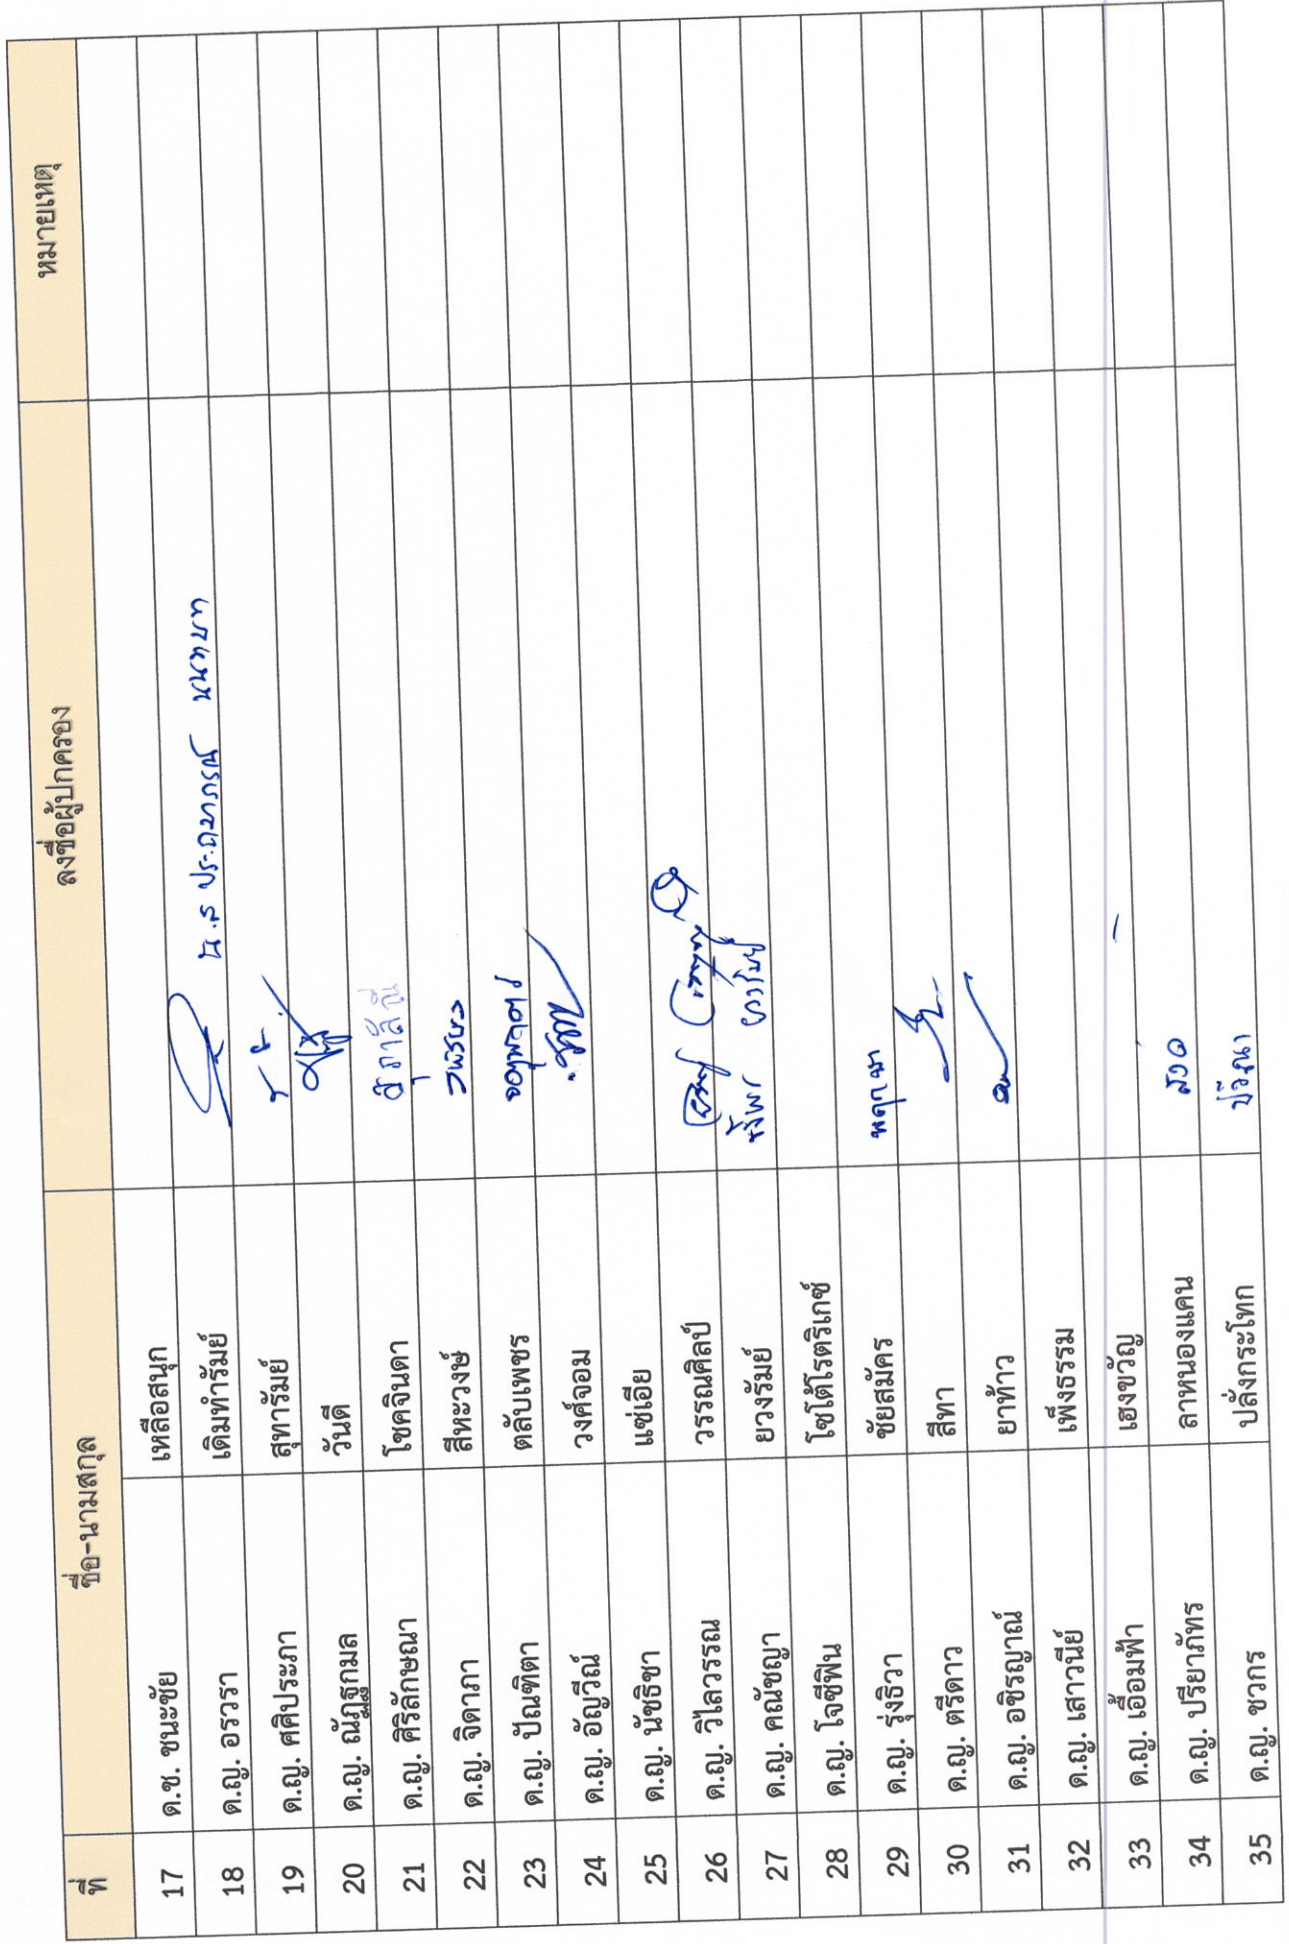 ที่ ชื่อ-นามสกุล ลงชื่อผู้ปกครอง หมายเหตุ
17 ด.ช. ชนะชัย เหลือสนุก
18 ด.ญ. อรวรา เดิมทำรัมย์ น.ส ประภาภรณ์ นนทบท
19 ด.ญ. ศศิประภา สุทารัมย์
20 ด.ญ. ณัฏฐกมล วันดี
21 ด.ญ. ศิริลักษณา โชคจินดา
22 ด.ญ. จิดาภา สีหะวงษ์
23 ด.ญ. ปัณฑิตา ตลับเพชร
24 ด.ญ. อัญวีณ์ วงศ์จอม
25 ด.ญ. นัชธิชา แซ่เอีย
26 ด.ญ. วิไลวรรณ วรรณศิลป์
27 ด.ญ. คณัชญา ยวงรัมย์
28 ด.ญ. โจซีฟิน โซโต้โรตริเกซ์
29 ด.ญ. รุ่งธิวา ชัยสมัคร
30 ด.ญ. ตรีดาว สีทา
31 ด.ญ. อชิรญาณ์ ยาท้าว
32 ด.ญ. เสาวนีย์ เพ็งธรรม
33 ด.ญ. เอื้อมฟ้า เฮงขวัญ -
34 ด.ญ. ปรียาภัทร ลาหนองแคน
35 ด.ญ. ชวกร ปลั่งกระโทก ปวีณา